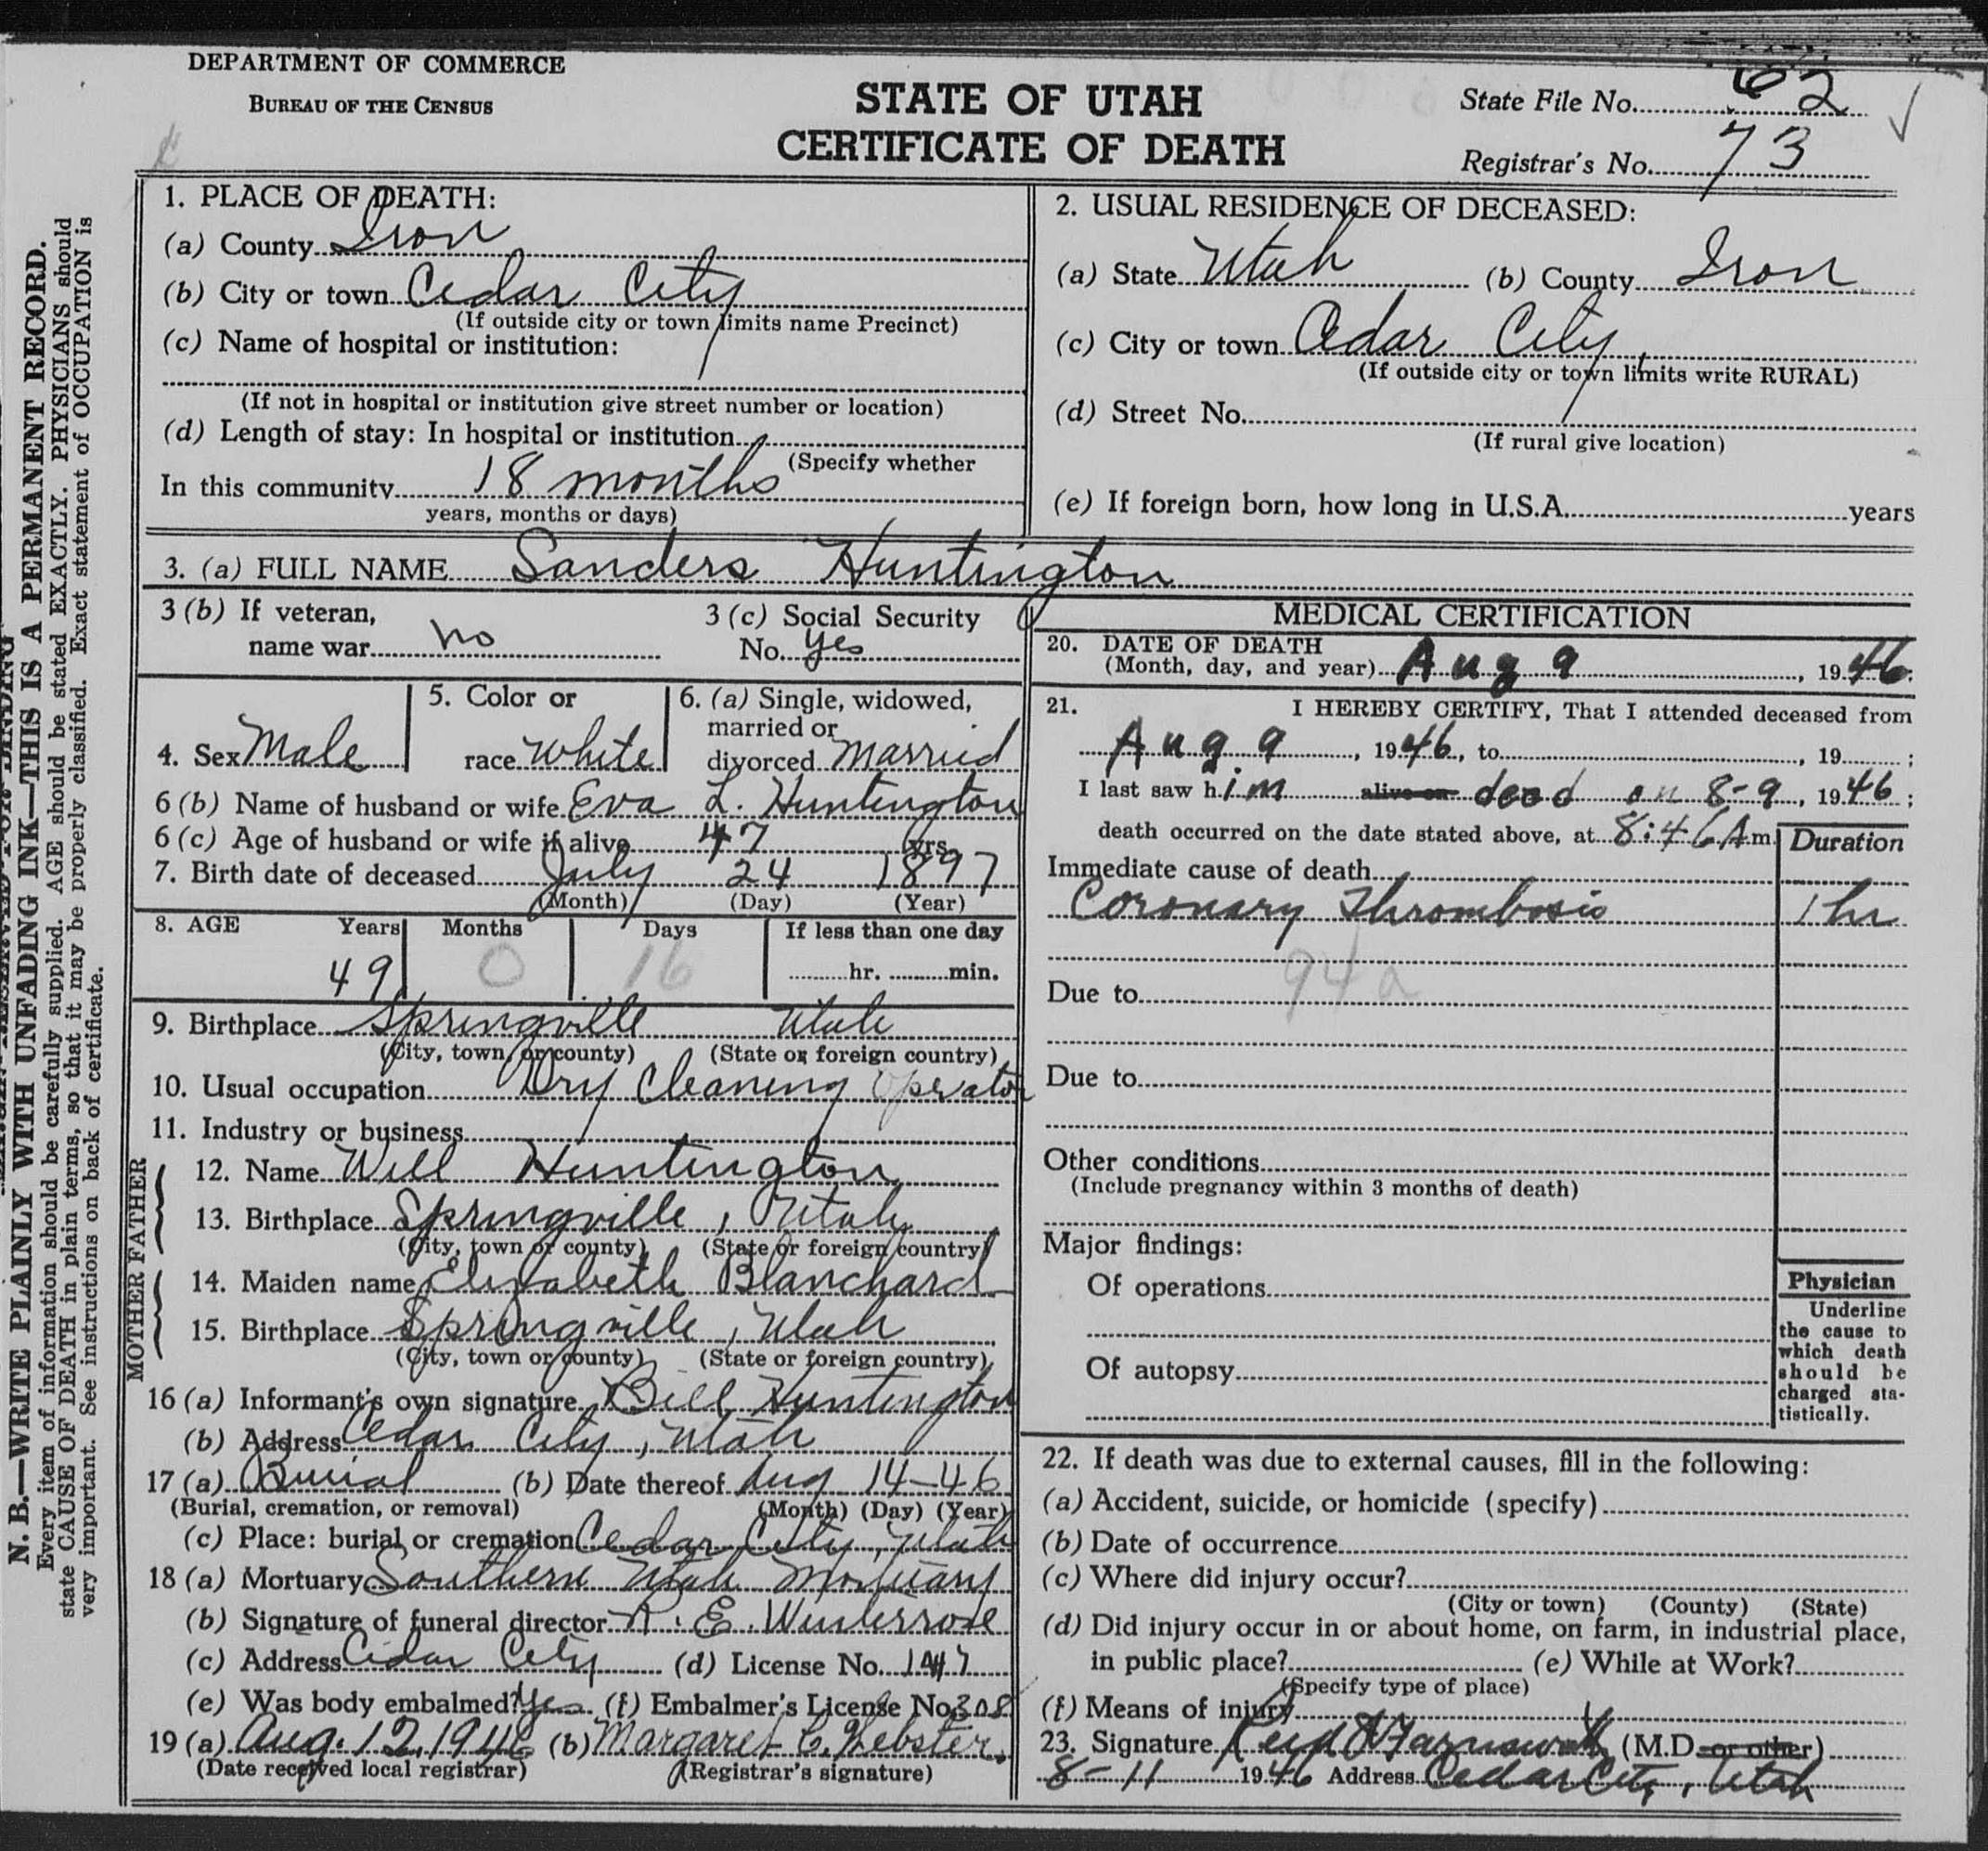 DEPARTMENT OF COMMERCE
BUREAU OF THE CENSUS
STATE OF UTAH
CERTIFICATE OF DEATH
State File No. 62
Registrar's No. 73
N. B.—WRITE PLAINLY WITH UNFADING INK—THIS IS A PERMANENT RECORD.
Every item of information should be carefully supplied. AGE should be stated EXACTLY. PHYSICIANS should
state CAUSE OF DEATH in plain terms, so that it may be properly classified. Exact statement of OCCUPATION is
very important. See instructions on back of certificate.
1. PLACE OF DEATH:
(a) County Iron
(b) City or town Cedar City
(If outside city or town limits name Precinct)
(c) Name of hospital or institution:
(If not in hospital or institution give street number or location)
(d) Length of stay: In hospital or institution
(Specify whether
In this community 18 months
years, months or days)
2. USUAL RESIDENCE OF DECEASED:
(a) State Utah (b) County Iron
(c) City or town Cedar City
(If outside city or town limits write RURAL)
(d) Street No.
(If rural give location)
(e) If foreign born, how long in U.S.A. years
3. (a) FULL NAME Sanders Huntington
3 (b) If veteran,
name war no
3 (c) Social Security
No. yes
4. Sex Male
5. Color or
race White
6. (a) Single, widowed,
married or
divorced Married
6 (b) Name of husband or wife Eva L. Huntington
6 (c) Age of husband or wife if alive 47 yrs.
7. Birth date of deceased July 24 1897
(Month) (Day) (Year)
8. AGE Years Months Days If less than one day
49 0 16 hr. min.
9. Birthplace Springville Utah
(City, town, or county) (State or foreign country)
10. Usual occupation Dry Cleaning Operator
11. Industry or business
FATHER
12. Name Will Huntington
13. Birthplace Springville, Utah
(City, town or county) (State or foreign country)
MOTHER
14. Maiden name Elizabeth Blanchard
15. Birthplace Springville, Utah
(City, town or county) (State or foreign country)
16 (a) Informant's own signature Bill Huntington
(b) Address Cedar City, Utah
17 (a) Burial (b) Date thereof Aug 14-46
(Burial, cremation, or removal) (Month) (Day) (Year)
(c) Place: burial or cremation Cedar City, Utah
18 (a) Mortuary Southern Utah Mortuary
(b) Signature of funeral director A. E. Winterrose
(c) Address Cedar City (d) License No.
(e) Was body embalmed? Yes (f) Embalmer's License No. 308
19 (a) Aug. 12, 1946 (b) Margaret C. Webster.
(Date received local registrar) (Registrar's signature)
MEDICAL CERTIFICATION
20. DATE OF DEATH
(Month, day, and year) Aug 9, 1946.
21. I HEREBY CERTIFY, That I attended deceased from
Aug 9, 1946, to , 19 ;
I last saw him alive on dead on 8-9, 1946;
death occurred on the date stated above, at 8:46 A m. Duration
Immediate cause of death
Coronary Thrombosis 1 hr
94a
Due to
Due to
Other conditions
(Include pregnancy within 3 months of death)
Major findings:
Of operations
Of autopsy
Physician
Underline
the cause to
which death
should be
charged sta-
tistically.
22. If death was due to external causes, fill in the following:
(a) Accident, suicide, or homicide (specify)
(b) Date of occurrence
(c) Where did injury occur?
(City or town) (County) (State)
(d) Did injury occur in or about home, on farm, in industrial place,
in public place? (e) While at Work?
(Specify type of place)
(f) Means of injury
23. Signature Reid Farnsworth (M.D. or other)
8-11 1946 Address Cedar City, Utah